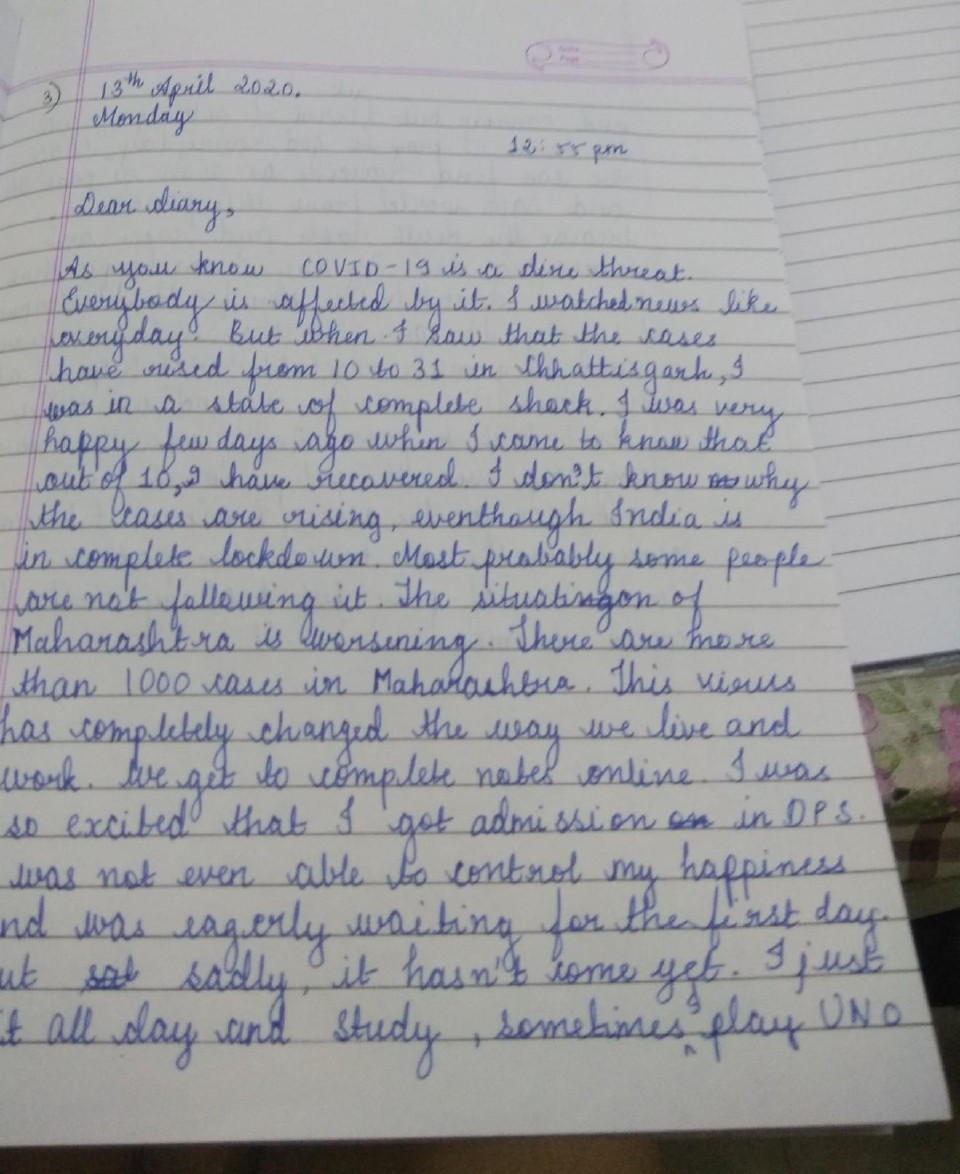 3) 13th April 2020.
Monday
12:55 pm
Dear diary,
As you know COVID-19 is a dire threat.
Everybody is affected by it. I watched news like
everyday. But when I saw that the cases
have rised from 10 to 31 in Chhattisgarh, I
was in a state of complete shock. I was very
happy few days ago when I came to know that
out of 10, 9 have recovered. I don't know why
the cases are rising, eventhough India is
in complete lockdown. Most probably some people
are not following it. The situation of
Maharashtra is worsening. There are more
than 1000 cases in Maharashtra. This virus
has completely changed the way we live and
work. We get to complete notes online. I was
so excited that I got admission in DPS.
was not even able to control my happiness
nd was eagerly waiting for the first day.
ut sadly, it hasn't come yet. I just
t all day and study, sometimes I play UNO